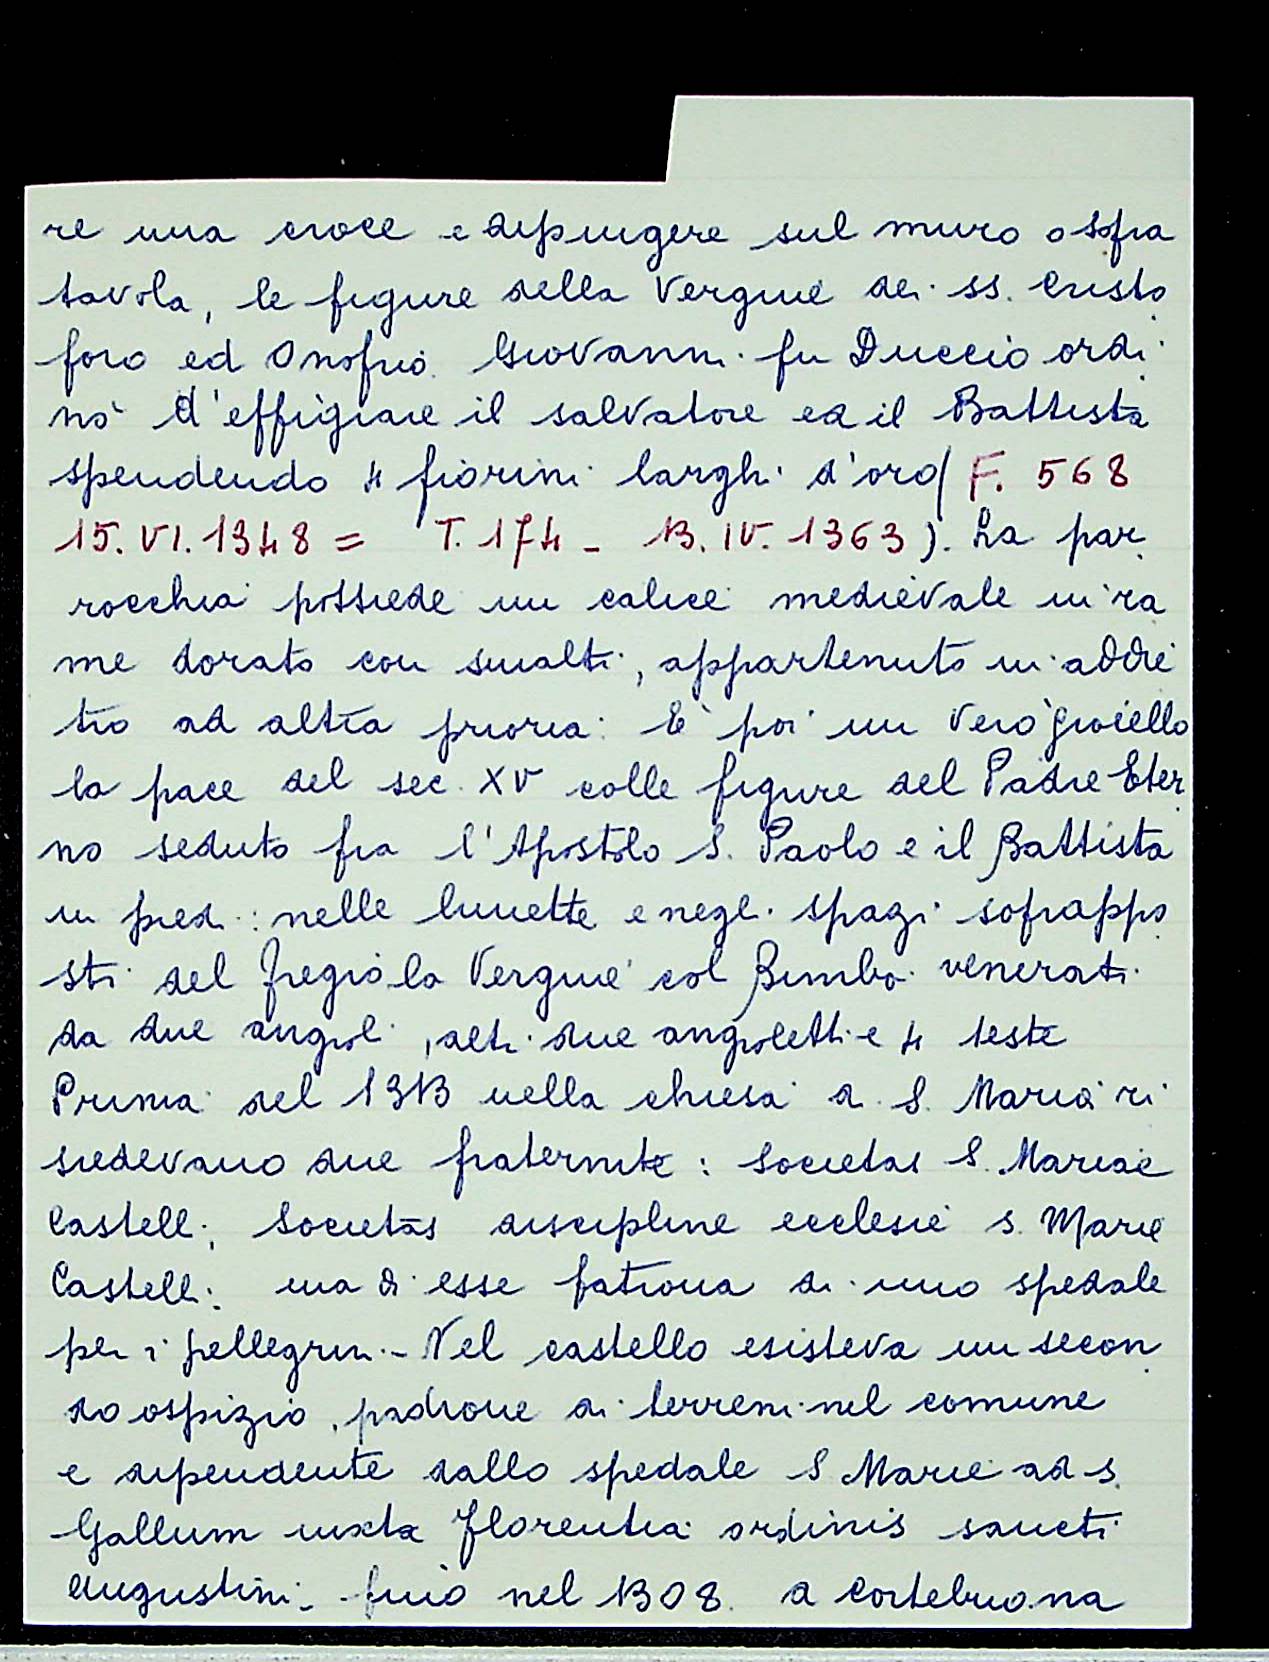 re una croce e dipingere sul muro o sopra
tavola, le figure della Vergine dei ss. Cristo
foro ed Onofrio. Giovanni fu Duccio ordi
nò d'effigiare il salvatore ed il Battista
spendendo 4 fiorini larghi d'oro ( F. 568
15. VI. 1348 = T. 174 - 13. IV. 1363 ). La par
rocchia possiede un calice medievale in ra
me dorato con smalti, appartenuto in addie
tro ad altra prioria: È poi un vero gioiello
la pace del sec. XV colle figure del Padre Eter
no seduto fra l'Apostolo S. Paolo e il Battista
in piedi: nelle lunette e negli spazi sofrappo
sti del fregio la Vergine col Bimbo venerati
da due angioli, altri due angioletti e 4 teste
Prima del 1313 nella chiesa di S. Maria ri
siedevano due fraternite: Societas S. Mariae
Castelli; Societas discipline ecclesie S. Marie
Castelli: una di esse patrona di uno spedale
per i pellegrini. - Nel castello esisteva un secon
do ospizio, padrone di terreni nel comune
e dipendente dallo spedale S. Marie ad S.
Gallum iuxta Florentia ordinis sancti
Augustini - finio nel 1308. a